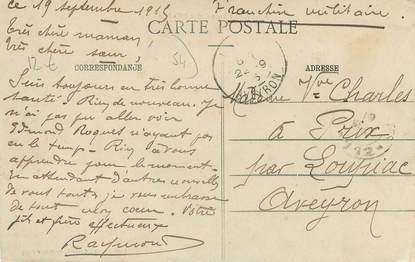 ce 19 septembre 1915 Franchise militaire.
CARTE POSTALE
Très chère maman,
Très chère sœur,
12 € 54
CORRESPONDANCE
ADRESSE
Suis toujours en très bonne
santé. Rien de nouveau. Je
n'ai pas pu aller voir
Edmond Roques n'ayant pas
eu le temps. Rien à vous
apprendre pour le moment.
En attendant d'autres nouvelles
de vous toutes je vous embrasse
de tout mon cœur. Votre
fils et frère affectueux
Raymond
AVEYRON
Madame Vve Charles
à Prix
par Loupiac
Aveyron